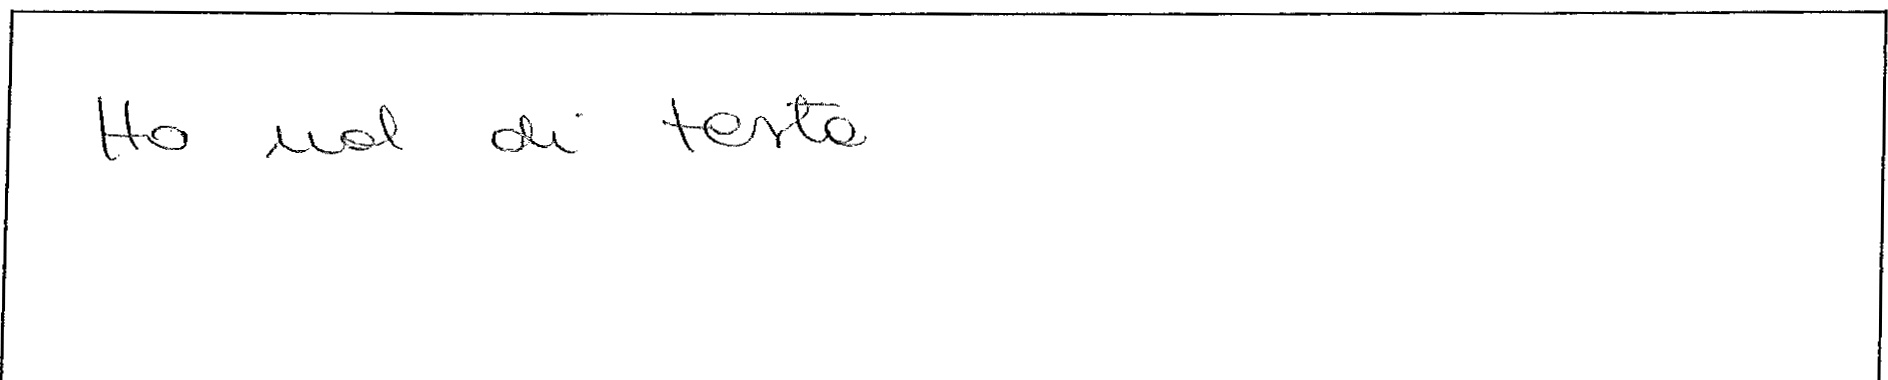 Ho mal di testa